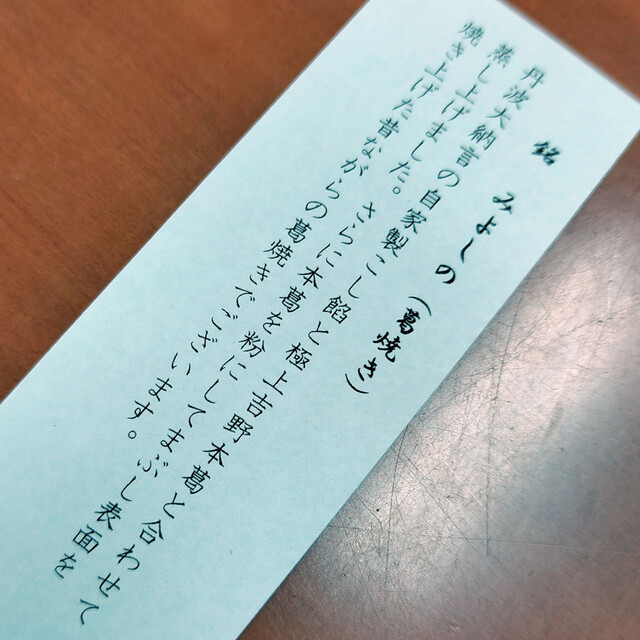 銘 みよしの(葛焼き)
丹波大納言の自家製こし餡と極上吉野本葛と合わせて
蒸し上げました。さらに本葛を粉にしてまぶし表面を
焼き上げた昔ながらの葛焼きでございます。